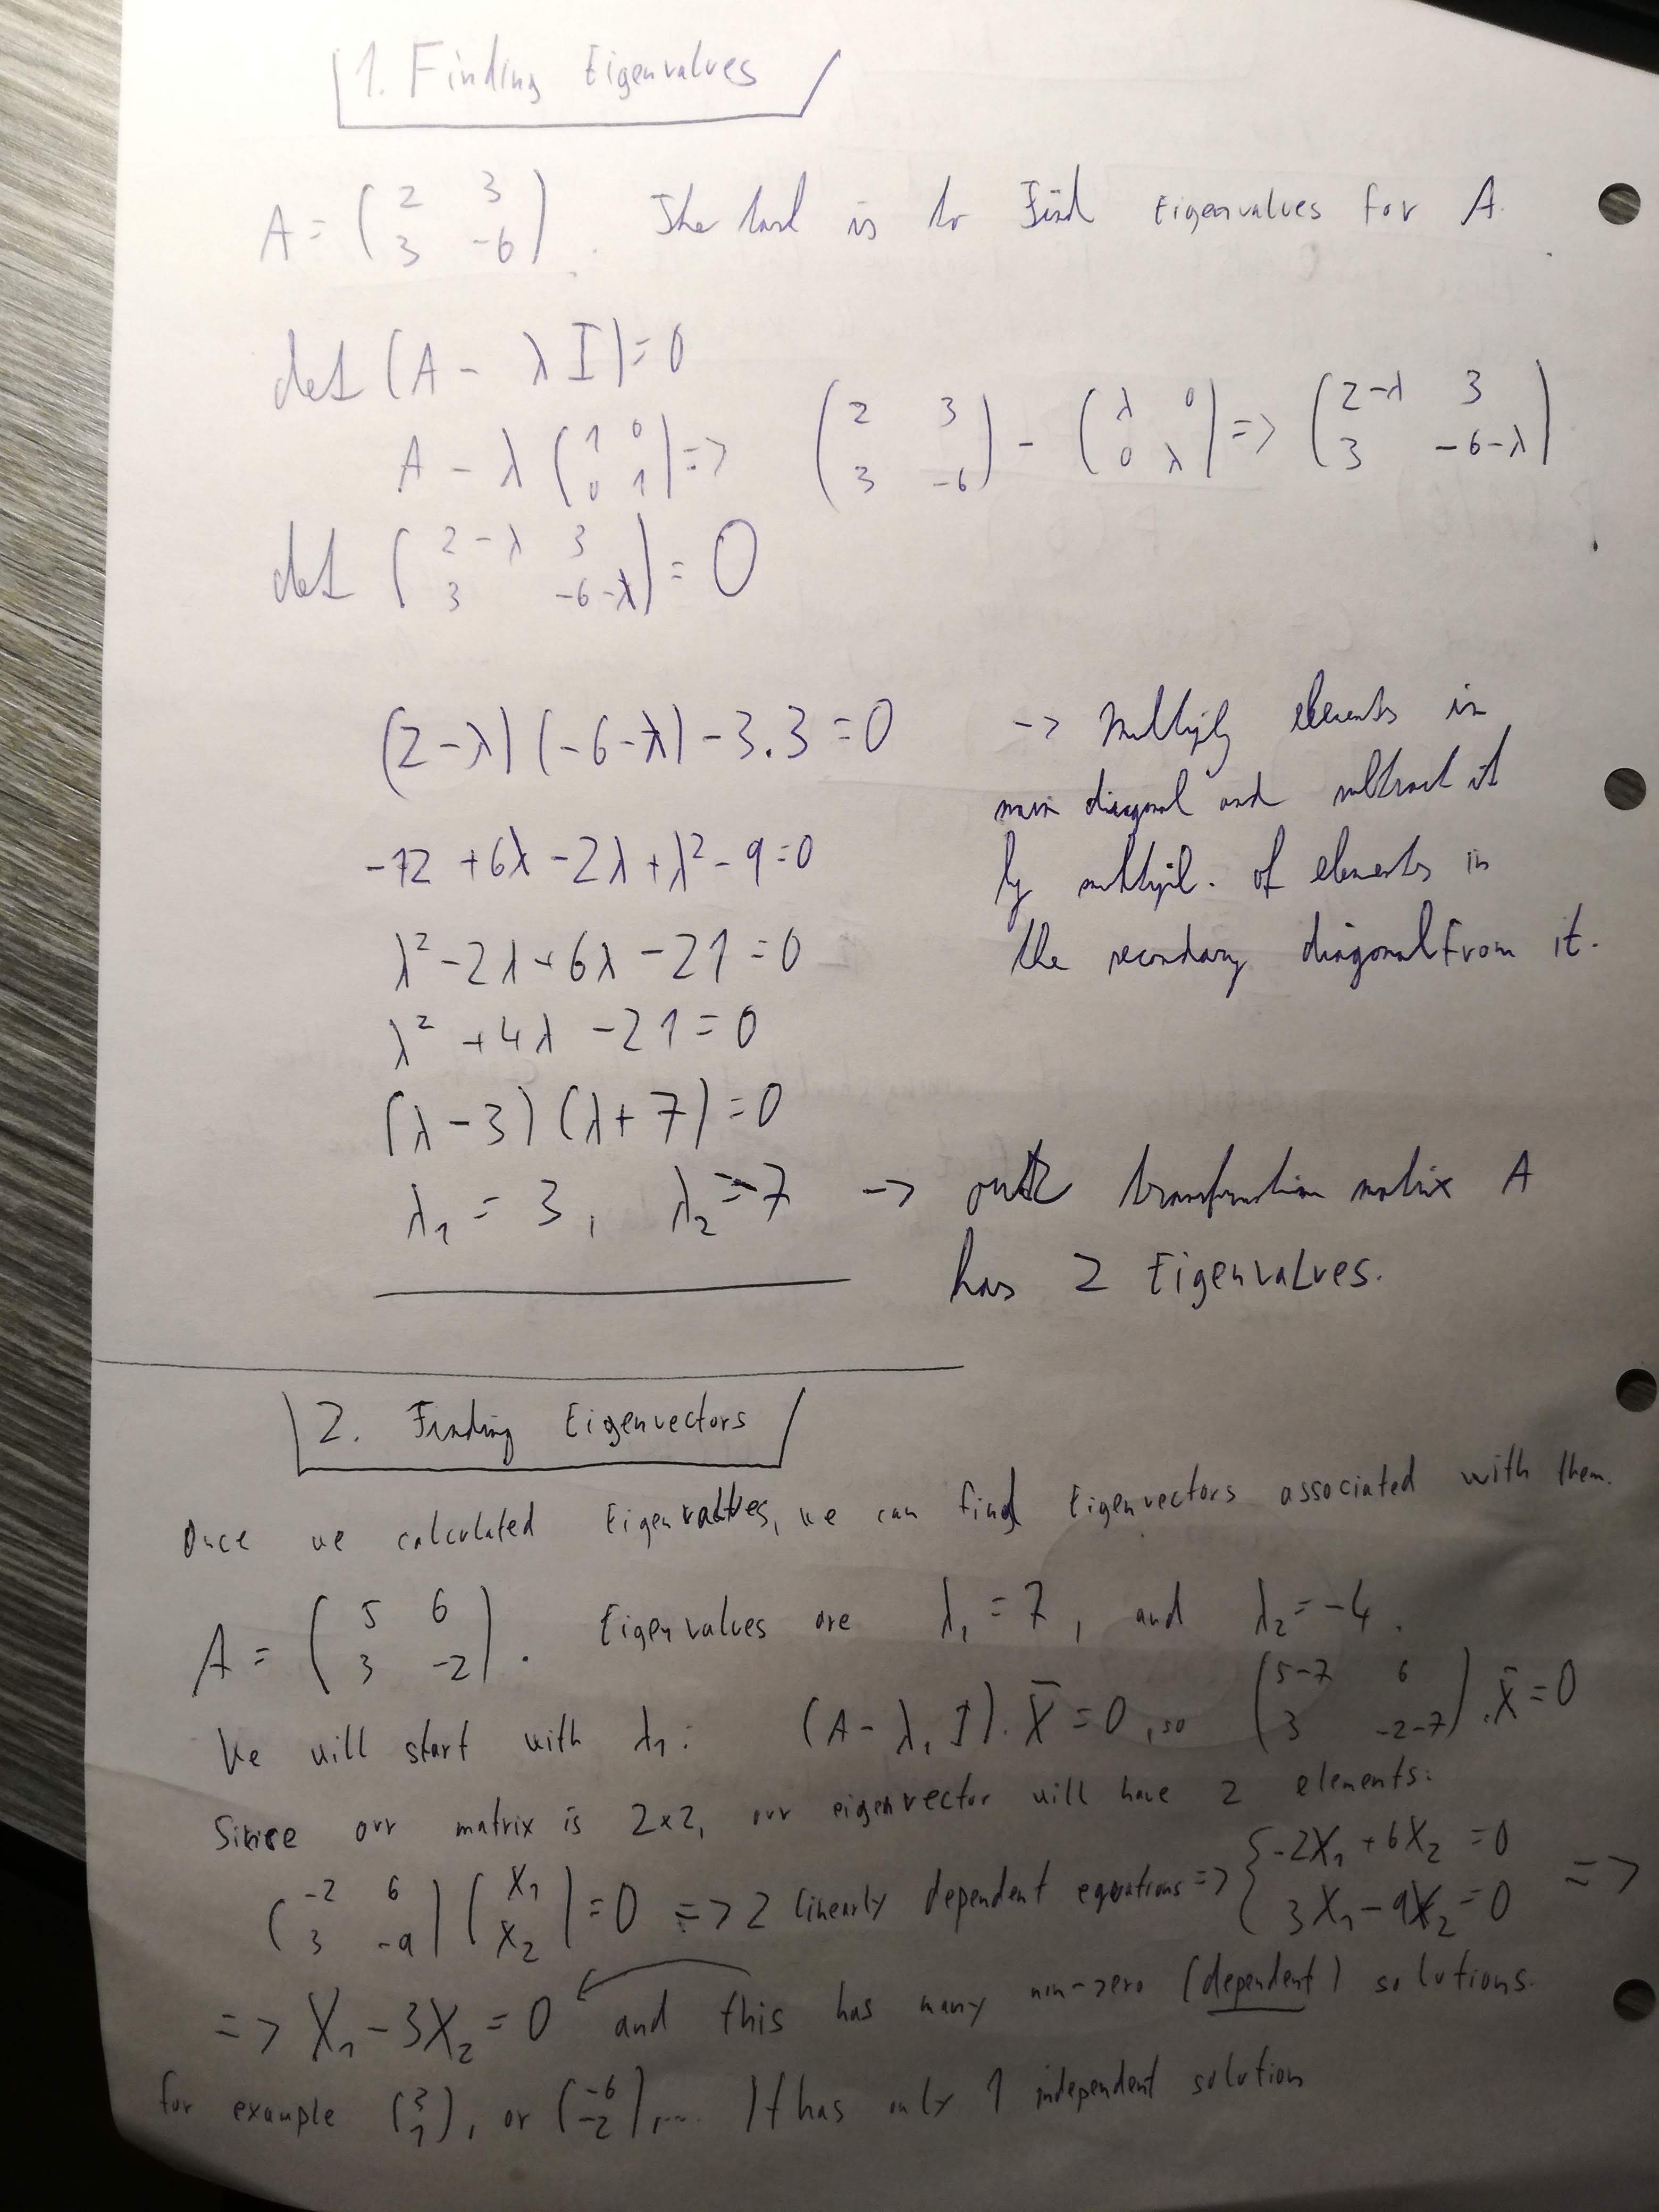 1. Finding Eigenvalues
A = ( 2 3 ; 3 -6 ). The task is to Find Eigenvalues for A.
det (A - λ I) = 0
A - λ ( 1 0 ; 0 1 ) => ( 2 3 ; 3 -6 ) - ( λ 0 ; 0 λ ) => ( 2-λ 3 ; 3 -6-λ )
det ( 2-λ 3 ; 3 -6-λ ) = 0
(2-λ) (-6-λ) - 3.3 = 0 -> Multiply elements in
main diagonal and subtract it
-12 + 6λ - 2λ + λ² - 9 = 0 by multipl. of elements in
λ² - 2λ + 6λ - 21 = 0 the secondary diagonal From it.
λ² + 4λ - 21 = 0
(λ - 3) (λ + 7) = 0
λ₁ = 3, λ₂ = -7 -> transformation matrix A
has 2 Eigenvalues.
2. Finding Eigenvectors
Once we calculated Eigenvalues, we can find Eigenvectors associated with them.
A = ( 5 6 ; 3 -2 ). Eigenvalues are λ₁ = 7, and λ₂ = -4.
We will start with λ₁: (A - λ₁ I). X̄ = 0, so ( 5-7 6 ; 3 -2-7 ). X̄ = 0
Since our matrix is 2x2, our eigenvector will have 2 elements:
( -2 6 ; 3 -9 ) ( X₁ ; X₂ ) = 0 => 2 linearly dependent equations => { -2X₁ + 6X₂ = 0 ; 3X₁ - 9X₂ = 0 =>
=> X₁ - 3X₂ = 0 and this has many non-zero (dependent) solutions.
for example ( 3 ; 1 ), or ( -6 ; -2 ), ... It has only 1 independent solution